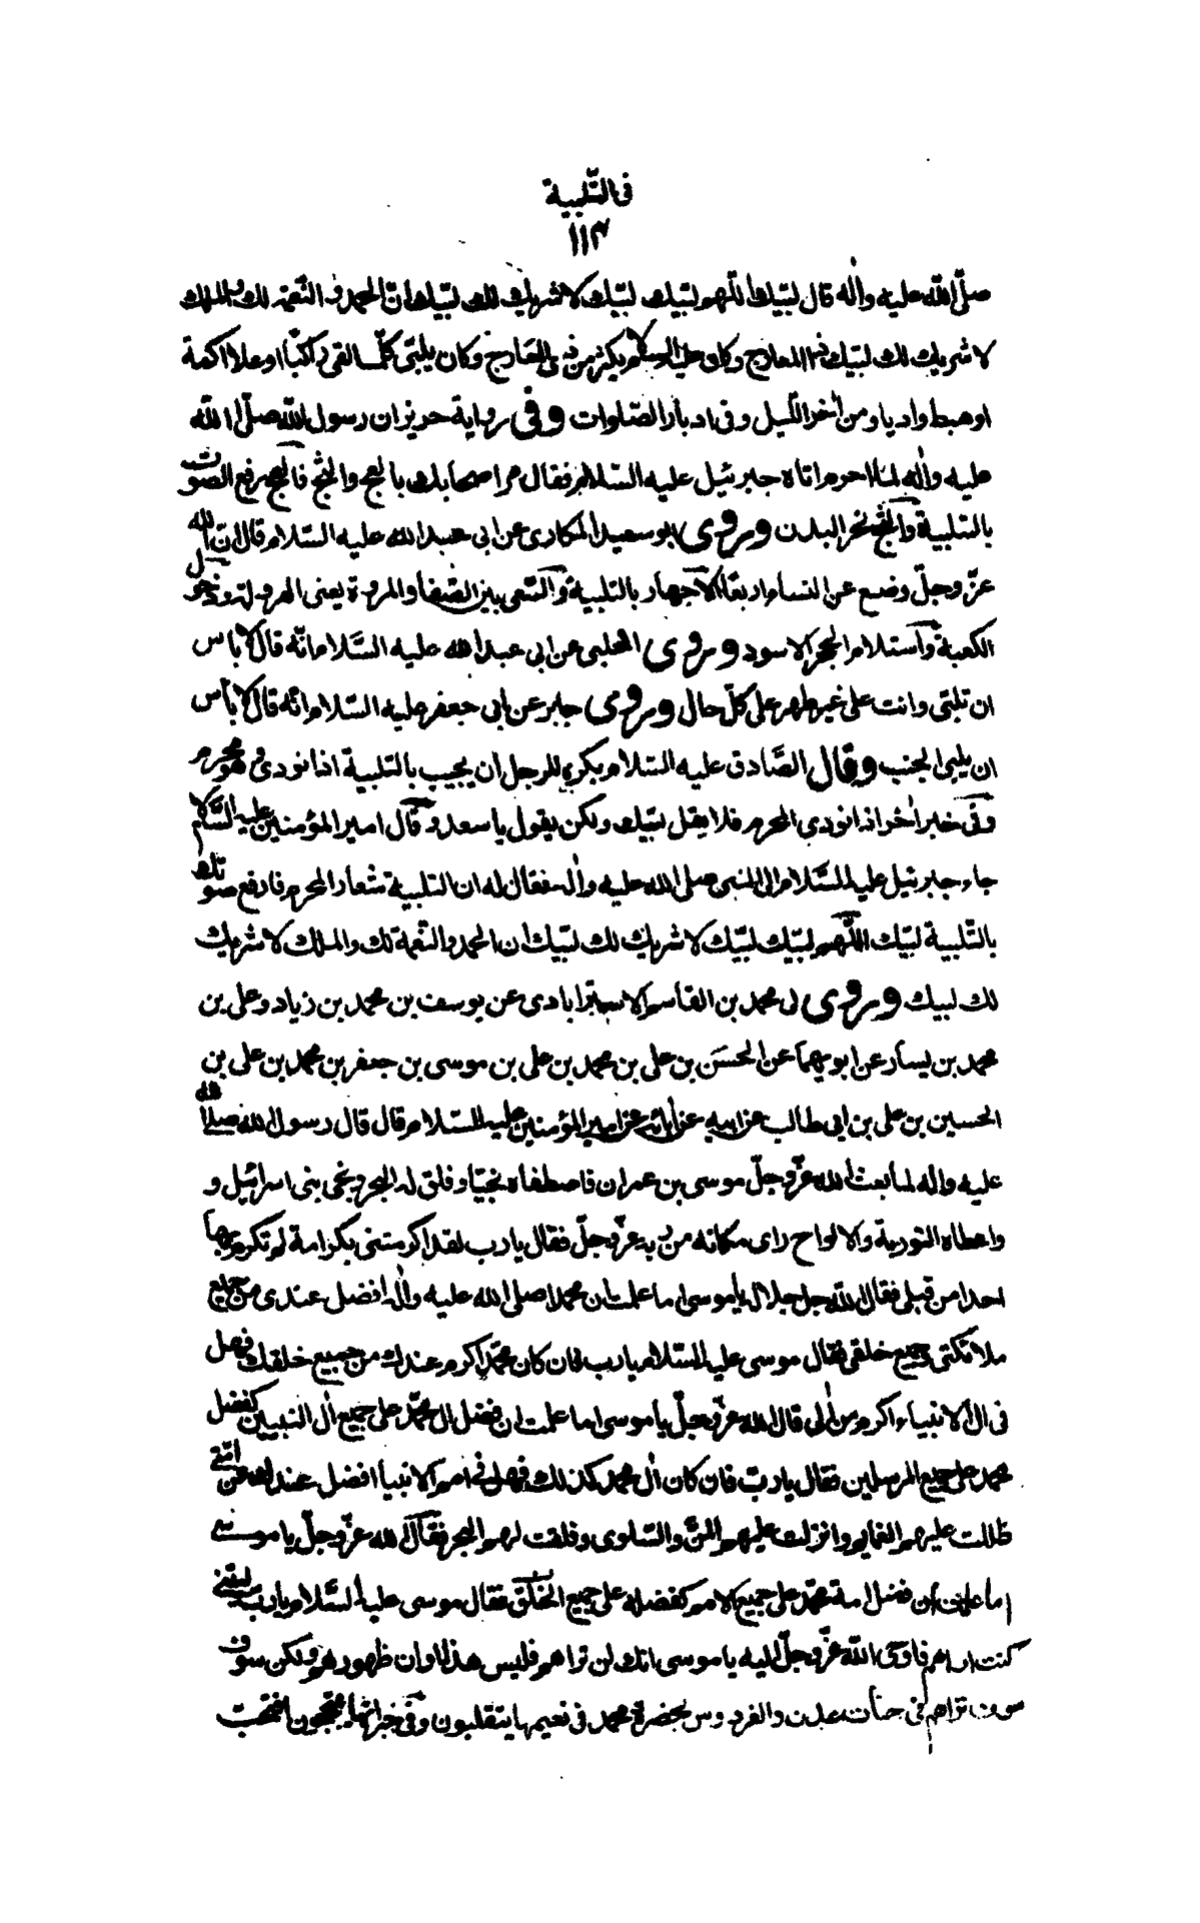 فی التّلبیة
١١٣
صلّی اللّه علیه واٰله قال لبّیك اللّهم لبّیك لبّیك لا شریك لك لبّیك انّ الحمد و النّعمة لك والملك
لا شریك لك لبّیك ذا المعارج وکان علیه السلام یکثر من ذی المعارج وکان یلبّی کلّما لقی راکبًا او علا اکمة
او هبط وادیا ومن اٰخر اللّیل وفی ادبار الصّلوات وفی روایة حریز ان رسول اللّه صلّی اللّه
علیه واٰله لمّا احرم اتاه جبرئیل علیه السّلام فقال مر اصحابك بالعج والثج فالعج رفع الصّوت
بالتلبیة والثج نحر البدن وروی ابو سعید المکاری عن ابی عبد الله علیه السّلام قال انّ الله
عزّ وجلّ وضع عن النساء اربعًا الاجهار بالتلبیة والسّعی بین الصّفا والمروة یعنی الهرولة ودخول
الکعبة واستلام الحجر الاسود وروی الحلبی عن ابی عبد الله علیه السّلام انّه قال لا باس
ان تلبّی وانت علی غیر طهر علی کلّ حال وروی جابر عن ابی جعفر علیه السّلام انّه قال لا باس
ان یلبی الجنب وقال الصّادق علیه السّلام یکره للرجل ان یجیب بالتلبیة اذا نودی وهو محرم
وفی خبر اٰخر اذا نودی المحرم فلا یقل لبّیك ولکن یقول یا سعد وقال امیر المؤمنین علیه السّلام
جاء جبرئیل علیه السّلام الی النبی صلی الله علیه واٰله فقال له ان التلبیة شعار المحرم فارفع صوتك
بالتّلبیة لبّیك اللّهم لبّیك لبّیك لا شریك لك لبّیك ان الحمد والنّعمة لك والملك لا شریك
لك لبیك وروی لی محمد بن القاسم الاسترابادی عن یوسف بن محمد بن زیاد وعلی بن
محمد بن یسار عن ابویهما عن الحسَن بن علی بن محمد بن علی بن موسی بن جعفر بن محمد بن علی بن
الحسین بن علی بن ابی طالب عن ابیه عن اٰبائه عن امیر المؤمنین علیه السّلام قال قال رسول الله صلی الله
علیه واله لما بعث الله عزّ وجلّ موسی بن عمران فاصطفاه نجیّا وفلق له البحر ونجی بنی اسرائیل و
واعطاه التوریة والالواح رای مکانه من ربه عزّ وجلّ فقال یا رب لقد اکرمتنی بکرامة لم تکرم بها
احدا من قبلی فقال اللّه جل جلاله یا موسی اما علمت ان محمدا صلی الله علیه واٰله افضل عندی من جمیع
ملائکتی وجمیع خلقی فقال موسی علیه السّلام یا رب فان کان محمّد اکرم عندك من جمیع خلقك فهل
فی اٰل الانبیاء اکرم من اٰلی قال الله عزّ وجلّ یا موسی اما علمت ان فضل اٰل محمّد علی جمیع اٰل النبیین کفضل
محمد علی جمیع المرسلین فقال یا ربّ فان کان اٰل محمد کذلك فهل فی امم الانبیاء افضل عندك من امّتی
ظللت علیهم الغمام وانزلت علیهم المنّ والسّلوی وفلقت لهم البحر فقال الله عزّ وجلّ یا موسی
اما علمت ان فضل امة محمّد علی جمیع الامم کفضله علی جمیع الخلق فقال موسی علیه السّلام یا رب لیتنی
کنت اراهم فاوحی اللّه عزّ وجلّ الیه یا موسی انك لن تراهم فلیس هذا اوان ظهورهم ولکن سوف
سوف تراهم فی جنات عدن والفردوس بحضرة محمد فی نعیمها یتقلبون وفی خیراتها یتبجحون افتحب